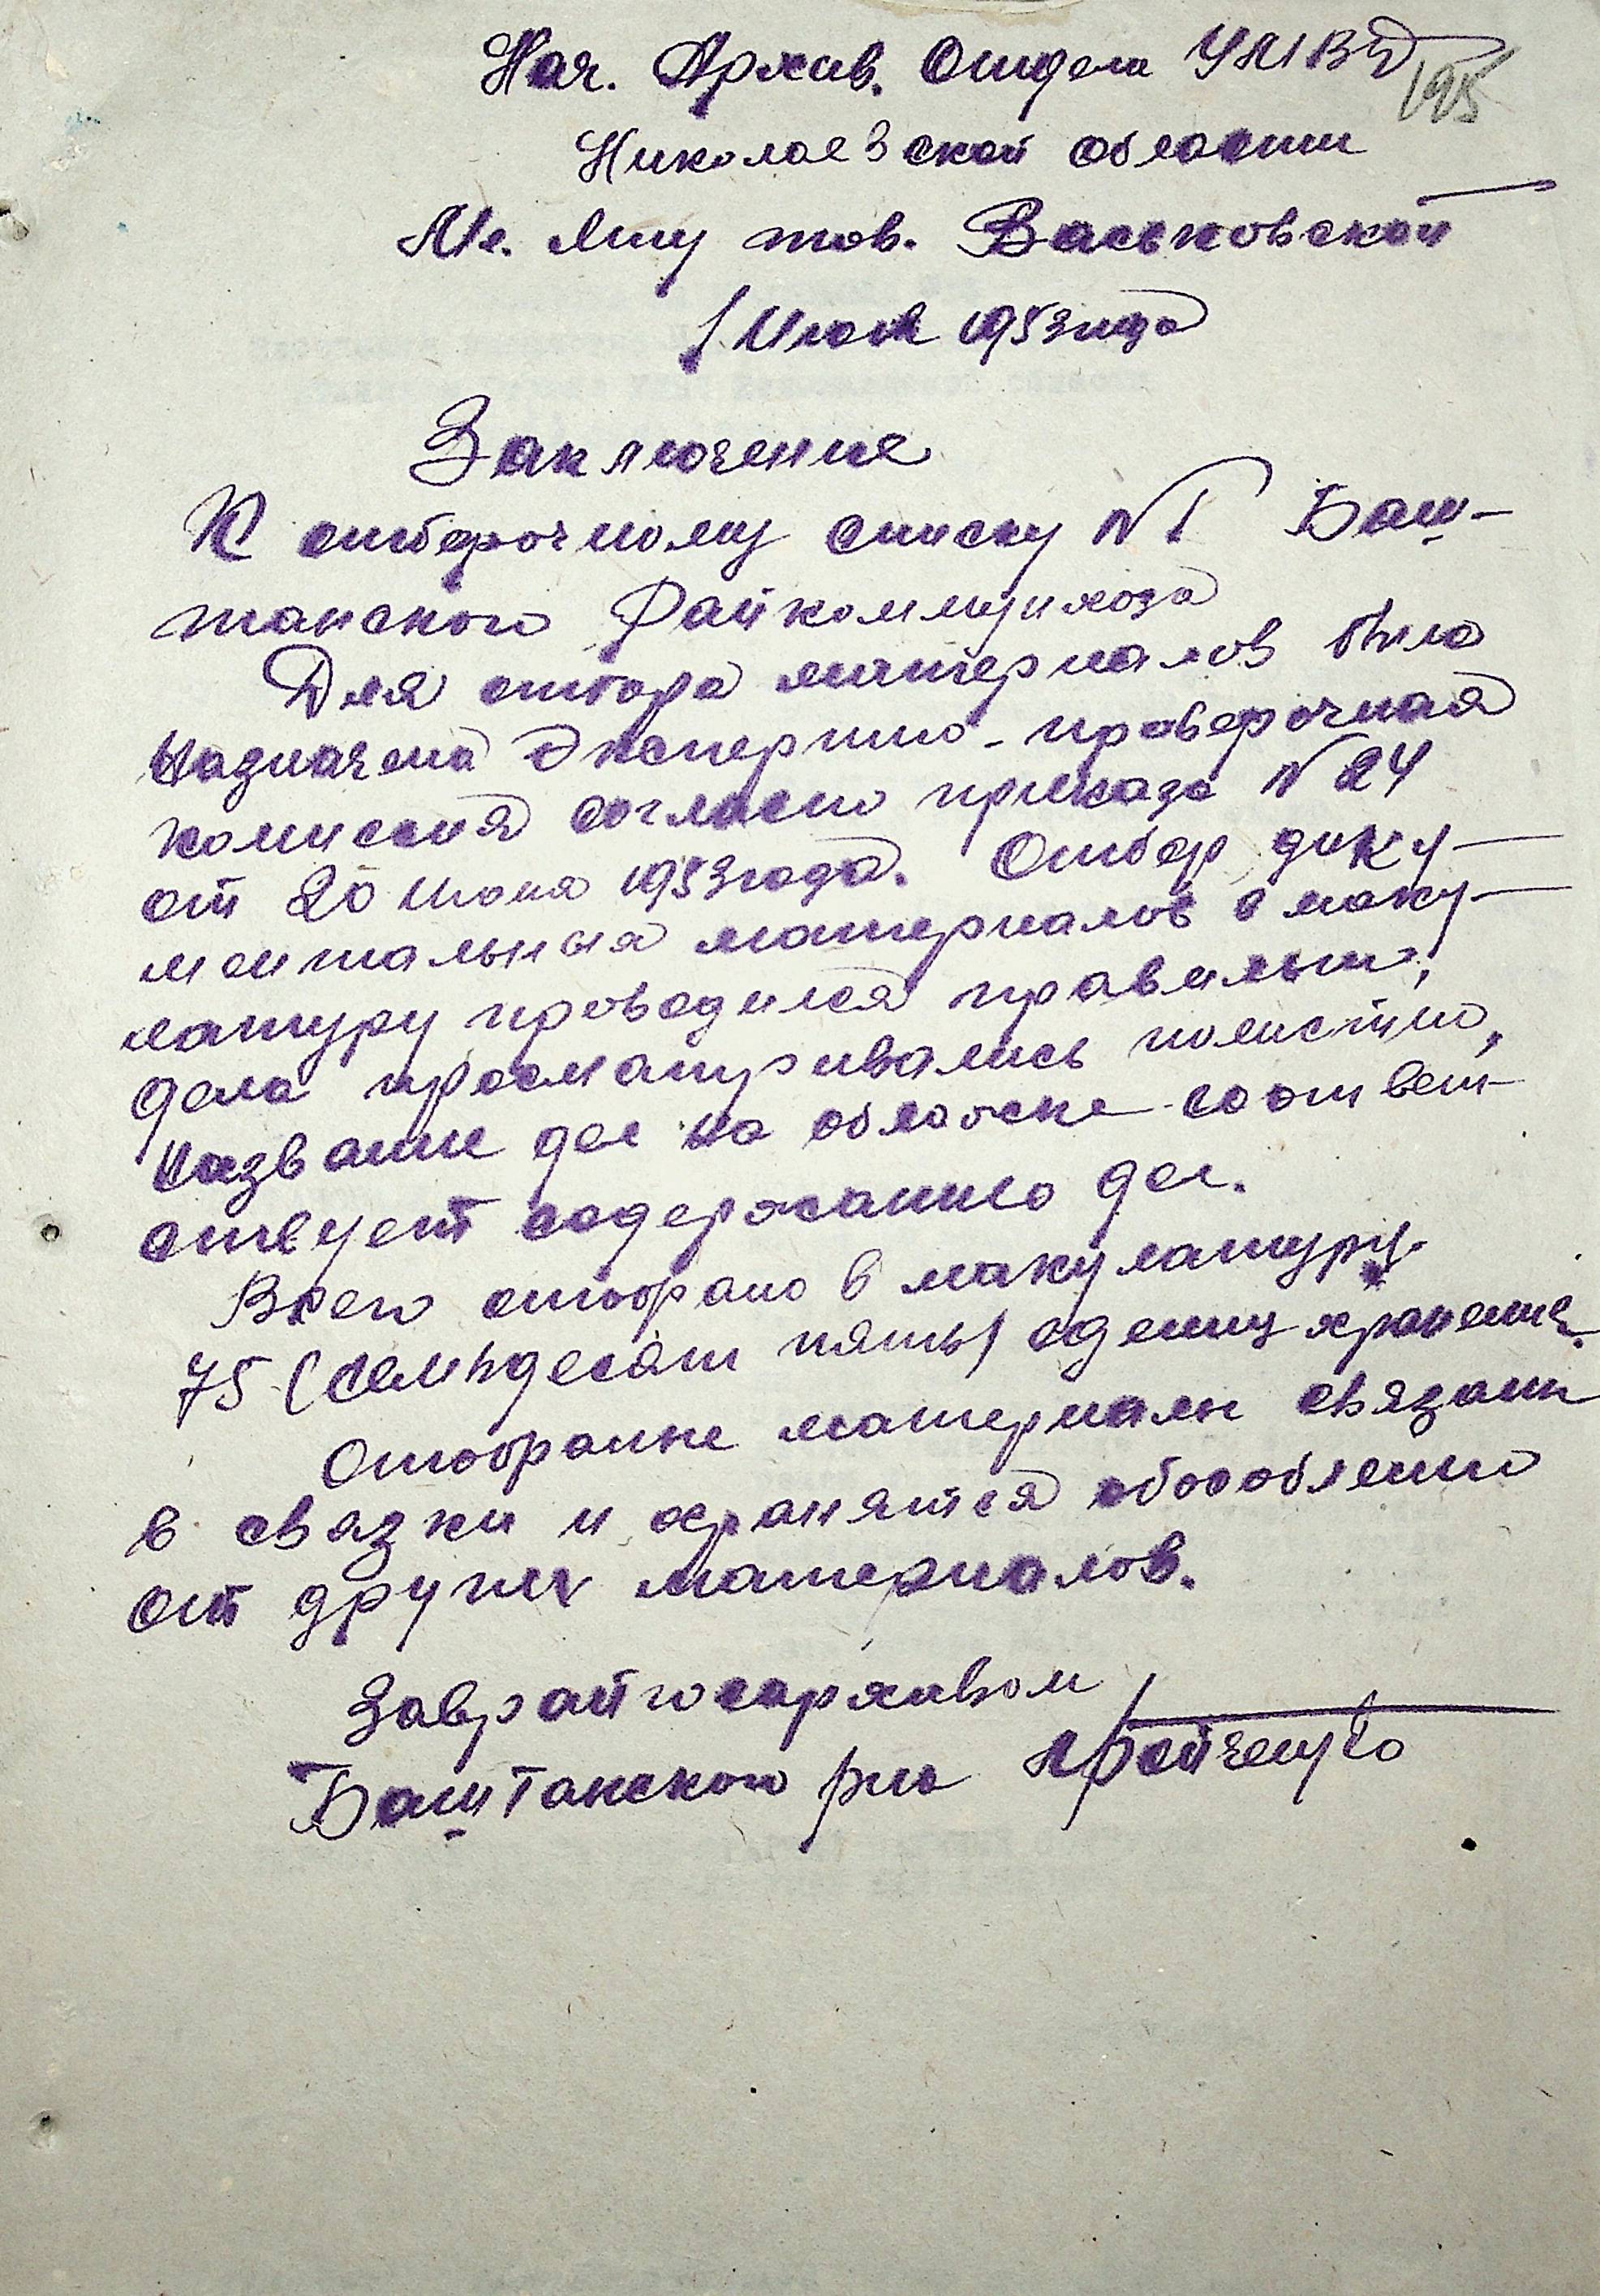 Нач. Архив. Отдела УМВД
195
Николаевской области
Мл. л-ту тов. Васьковской
1 Июля 1953 года
Заключение
К отборочному списку №1 Баш-
танского Райкоммунхоза
Для отбора материалов была
назначена Экспертно-проверочная
комиссия согласно приказа №24
от 20 июня 1953 года. Отбор доку-
ментальных материалов в маку-
латуру проводился правильно,
дела просматривались полистно,
название дел на обложке соответ-
ствует содержанию дел.
Всего отобрано в макулатуру
75 (семьдесят пять) единиц хранения.
Отобраные материалы связаны
в связки и хранятся обособленно
от других материалов.
Заврайгосархивом
Баштанского р-на